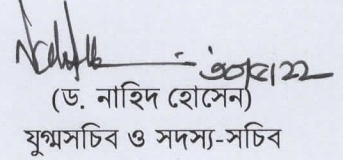 ৩০/৫/22
(ড. নাহিদ হোসেন)
যুগ্মসচিব ও সদস্য-সচিব